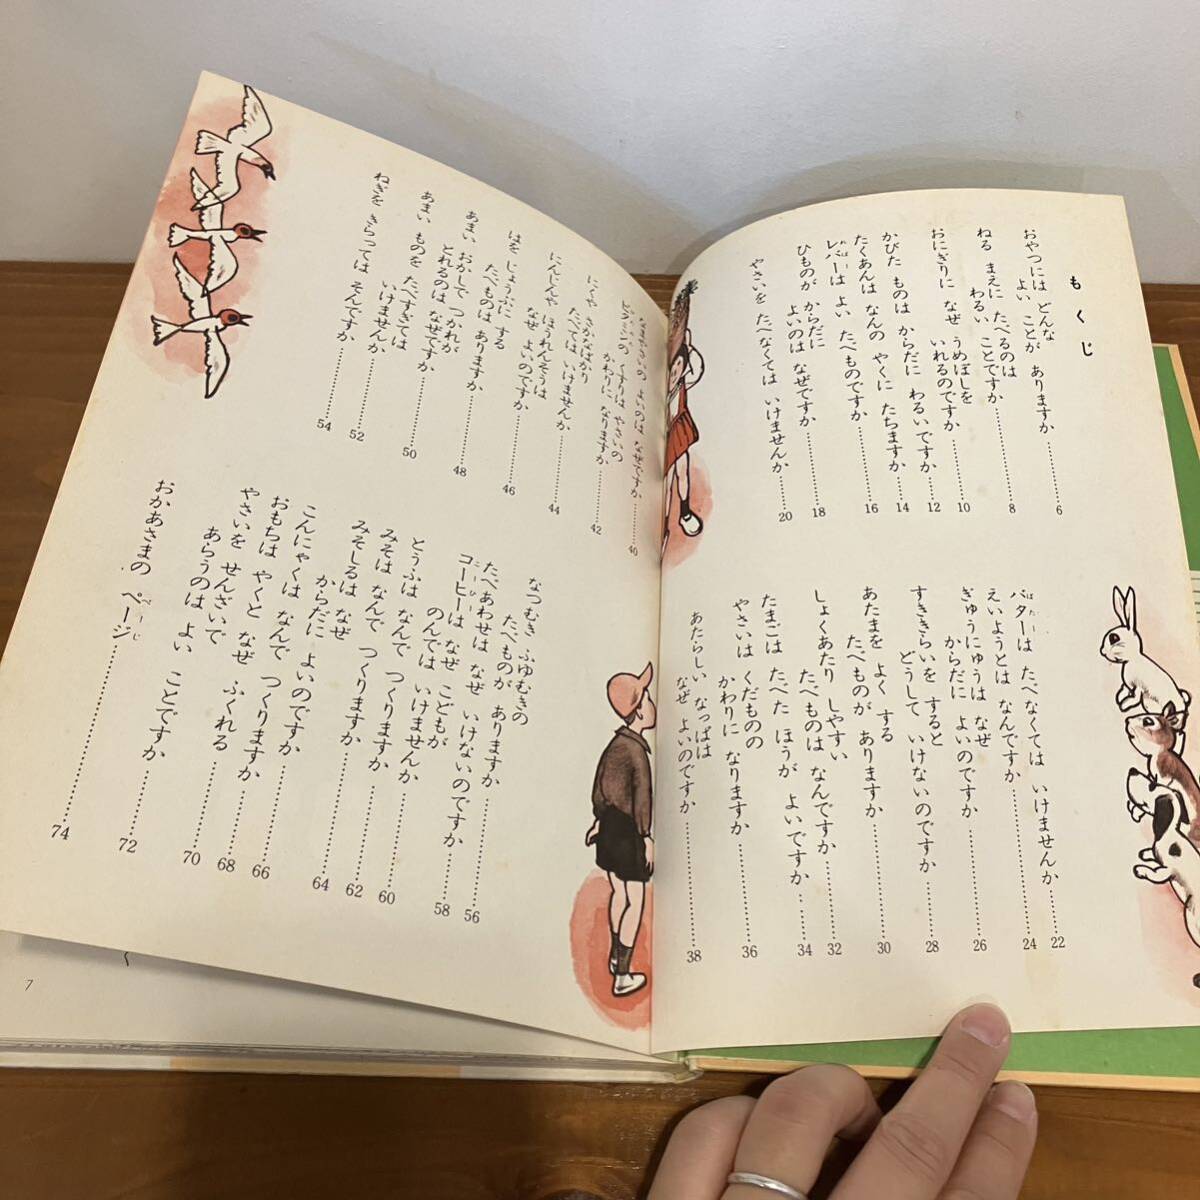 もくじ
おやつには どんな
よい ことが ありますか………6
ねる まえに たべるのは
わるい ことですか………8
おにぎりに なぜ うめぼしを
いれるのですか………10
かびた ものは からだに わるいですか………12
たくあんは なんの やくに たちますか………14
レバーは よい たべものですか………16
ひものが からだに
よいのは なぜですか………18
やさいを たべなくては いけませんか………20
バターは たべなくては いけませんか………22
えいようとは なんですか………24
ぎゅうにゅうは なぜ
からだに よいのですか………26
すききらいを すると
どうして いけないのですか………28
あたまを よく する
たべものが ありますか………30
しょくあたり しやすい
たべものは なんですか………32
たまごは たべた ほうが よいですか………34
やさいは くだものの
かわりに なりますか………36
あたらしい なっぱは
なぜ よいのですか………38
なぜですか………40
くすりは やさいの
かわりに なりますか………42
にくや さかなばかり
たべては いけませんか………44
にんじんや ほうれんそうは
なぜ よいのですか………46
はを じょうぶに する
たべものは ありますか………48
あまい おかしで つかれが
とれるのは なぜですか………50
あまい ものを たべすぎては
いけませんか………52
ねぎを きらっては そんですか………54
なつむき ふゆむきの
たべものが ありますか………56
たべあわせは なぜ いけないのですか………58
コーヒーは なぜ こどもが
のんでは いけませんか………60
とうふは なんで つくりますか………62
みそは なんで つくりますか………64
みそしるは なぜ
からだに よいのですか………66
こんにゃくは なんで つくりますか………68
おもちは やくと なぜ ふくれる………70
やさいを せんざいで
あらうのは よい ことですか………72
おかあさまの ページ………74
7